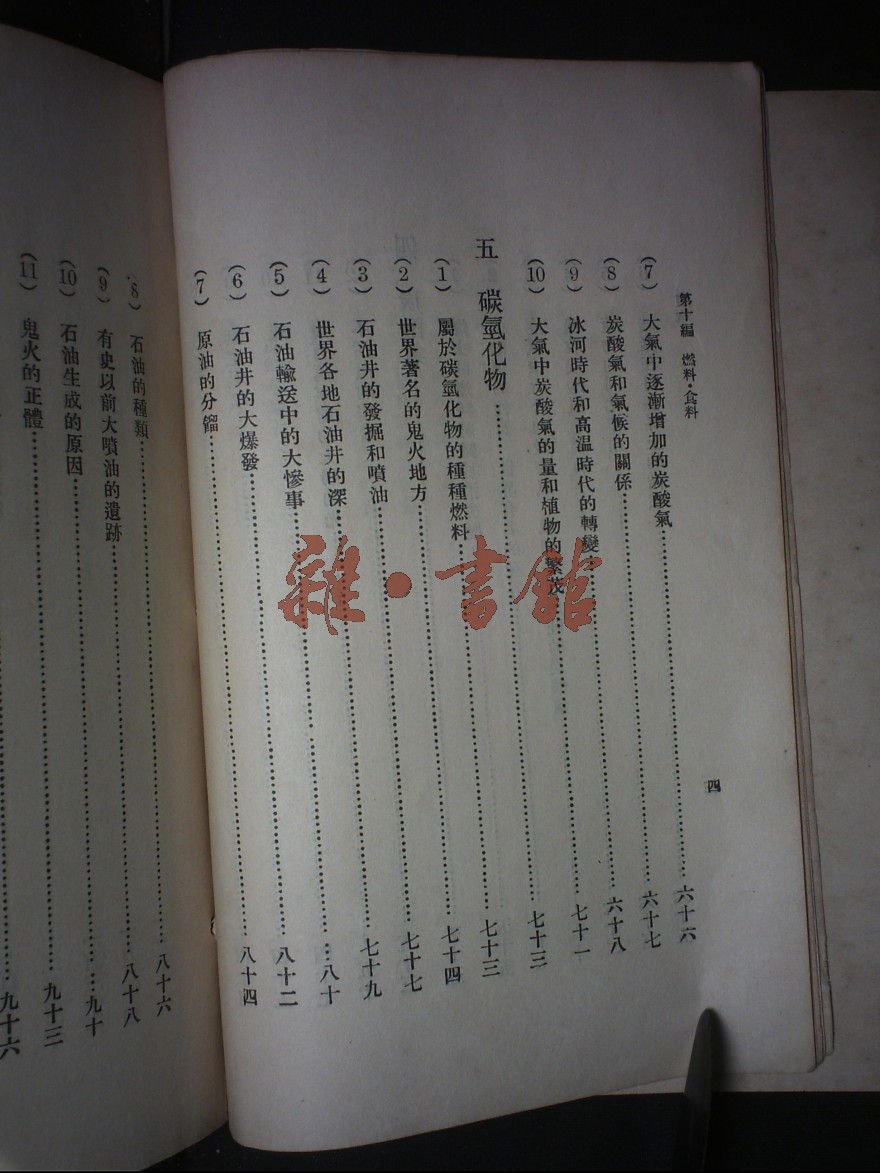 第十編 燃料・食料
四
(7) 大氣中逐漸增加的炭酸氣……六十六
(8) 炭酸氣和氣候的關係……六十七
(9) 冰河時代和高温時代的轉變……六十八
(10) 大氣中炭酸氣的量和植物的繁茂……七十一
五 碳氫化物……七十三
(1) 屬於碳氫化物的種種燃料……七十三
(2) 世界著名的鬼火地方……七十四
(3) 石油井的發掘和噴油……七十七
(4) 世界各地石油井的深……七十九
(5) 石油輸送中的大慘事……八十
(6) 石油井的大爆發……八十二
(7) 原油的分餾……八十四
(8) 石油的種類……八十六
(9) 有史以前大噴油的遺跡……八十八
(10) 石油生成的原因……九十
(11) 鬼火的正體……九十三
九十六
雜・書館